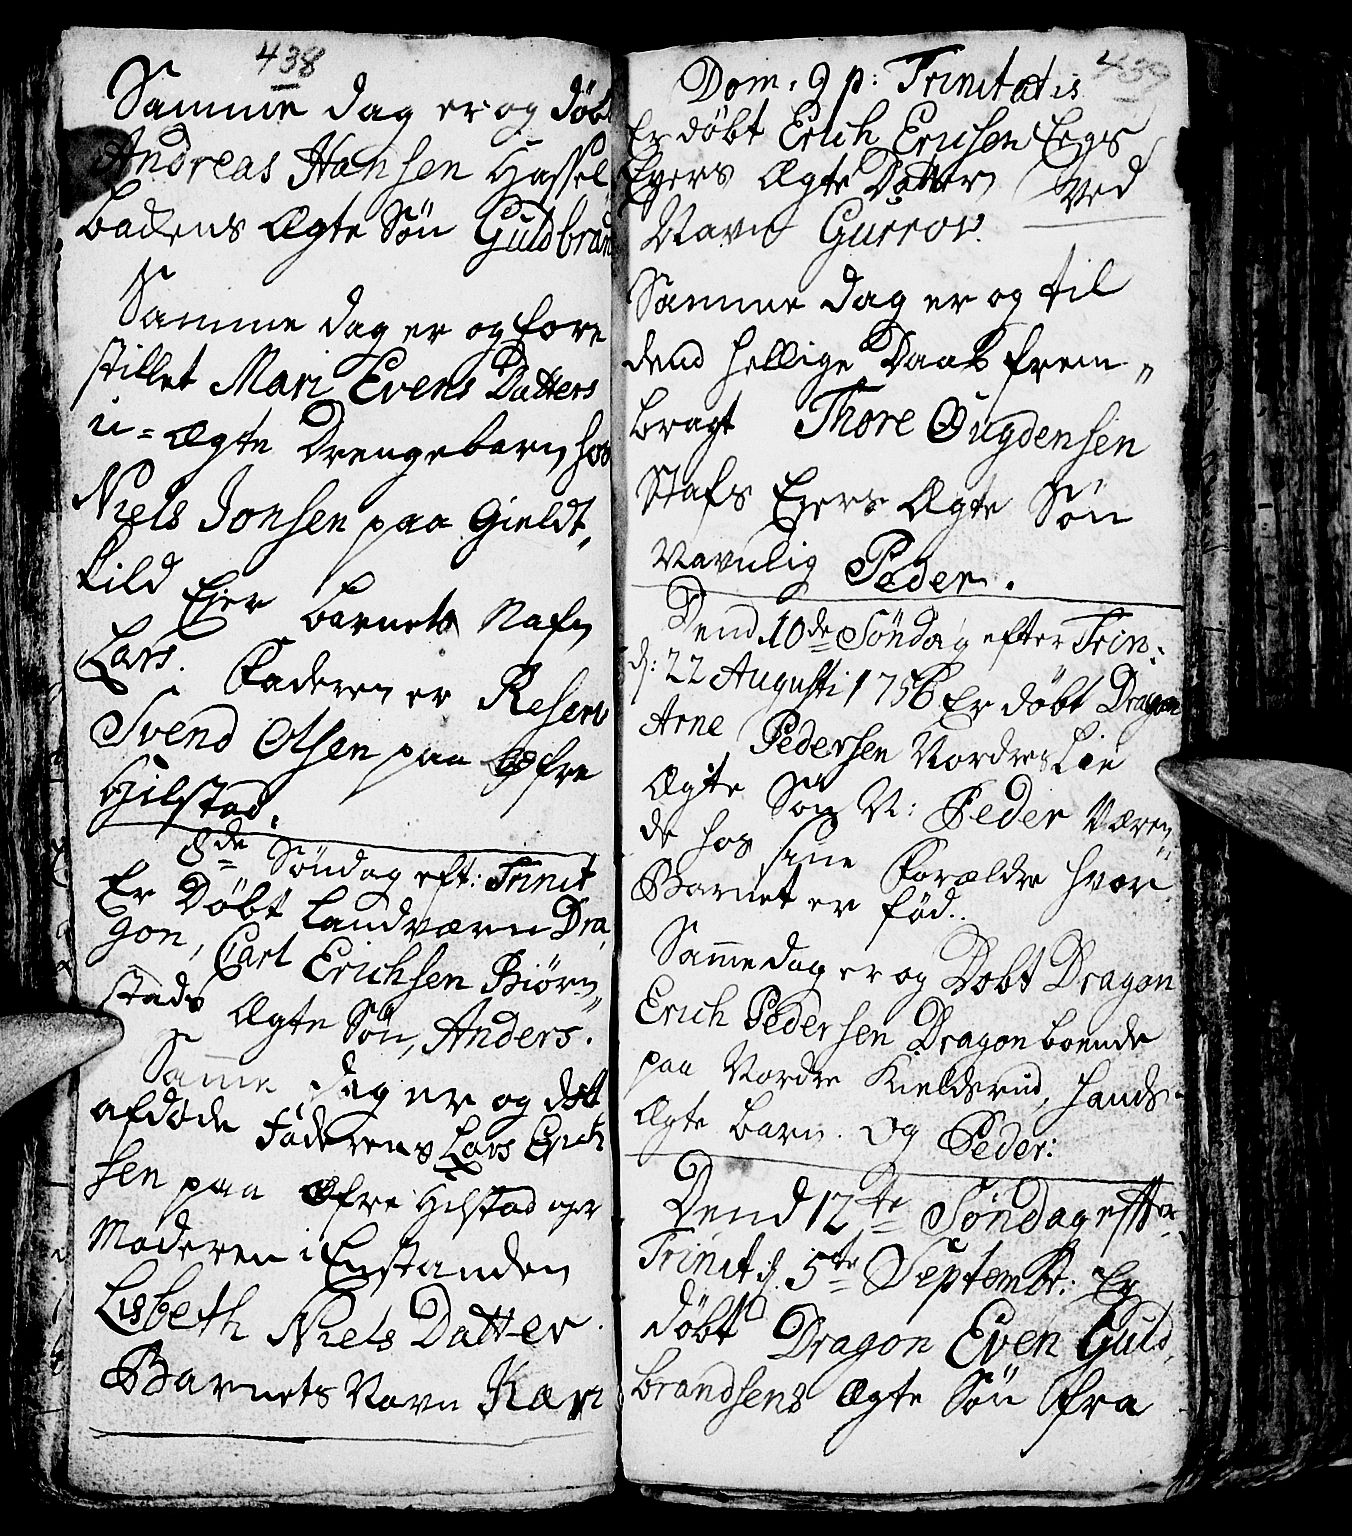 438
Samme dag er og døbt
Andreas Hansen Hassel
bakens Ægte Søn Guldbrand
Samme dag er og fore
stillet Mari Evens Datters
u=ægte Drengebarn hos
Niels Jonsen paa Gieldt„
kild
Ejer barnets Nafn
Lars. Faderen er Reserv
Svend Olsen paa Øfre
Hilstad.
8de Søndag eft: Trinit
Er Døbt Landværn Dra
gon, Carl Erichsen Biørn„
stads Ægte Søn, Anders.
Samme dag er og døbt
afdøde Faderens Lars Erich
sen paa Øfre Hilstad og
Moderen i Enstanden
Lisbeth Niels Datter.
Barnets Navn Kari
439
Dom. 9 p: Trinitatis
Er døbt Erich Erichsen
Ejers Ægte Datter Ved
Navn Gurrov.
Samme dag er og til
dend hellige Daab frem„
bragt Thore Gugdensen
Stafs Ejers Ægte Søn
Navnlig Peder.
Dend 10de Søndag efter Trin:
d: 22 Augusti 1756 Er døbt Dragon
Arne Pedersen Nordre Lie
Ægte Søn N: Peder Væren„
de hos sine Forældre hvor
Barnet er fød.
Samme dag er og Døbt Dragon
Erich Pedersen Dragon boende
paa Nordre Kielderud, hands
Ægte barn. Og Peder:
Dend 12te Søndag efter
Trinit d. 5te Septembr: Er
døbt Dragon Even Guld„
brandsens Ægte Søn fra